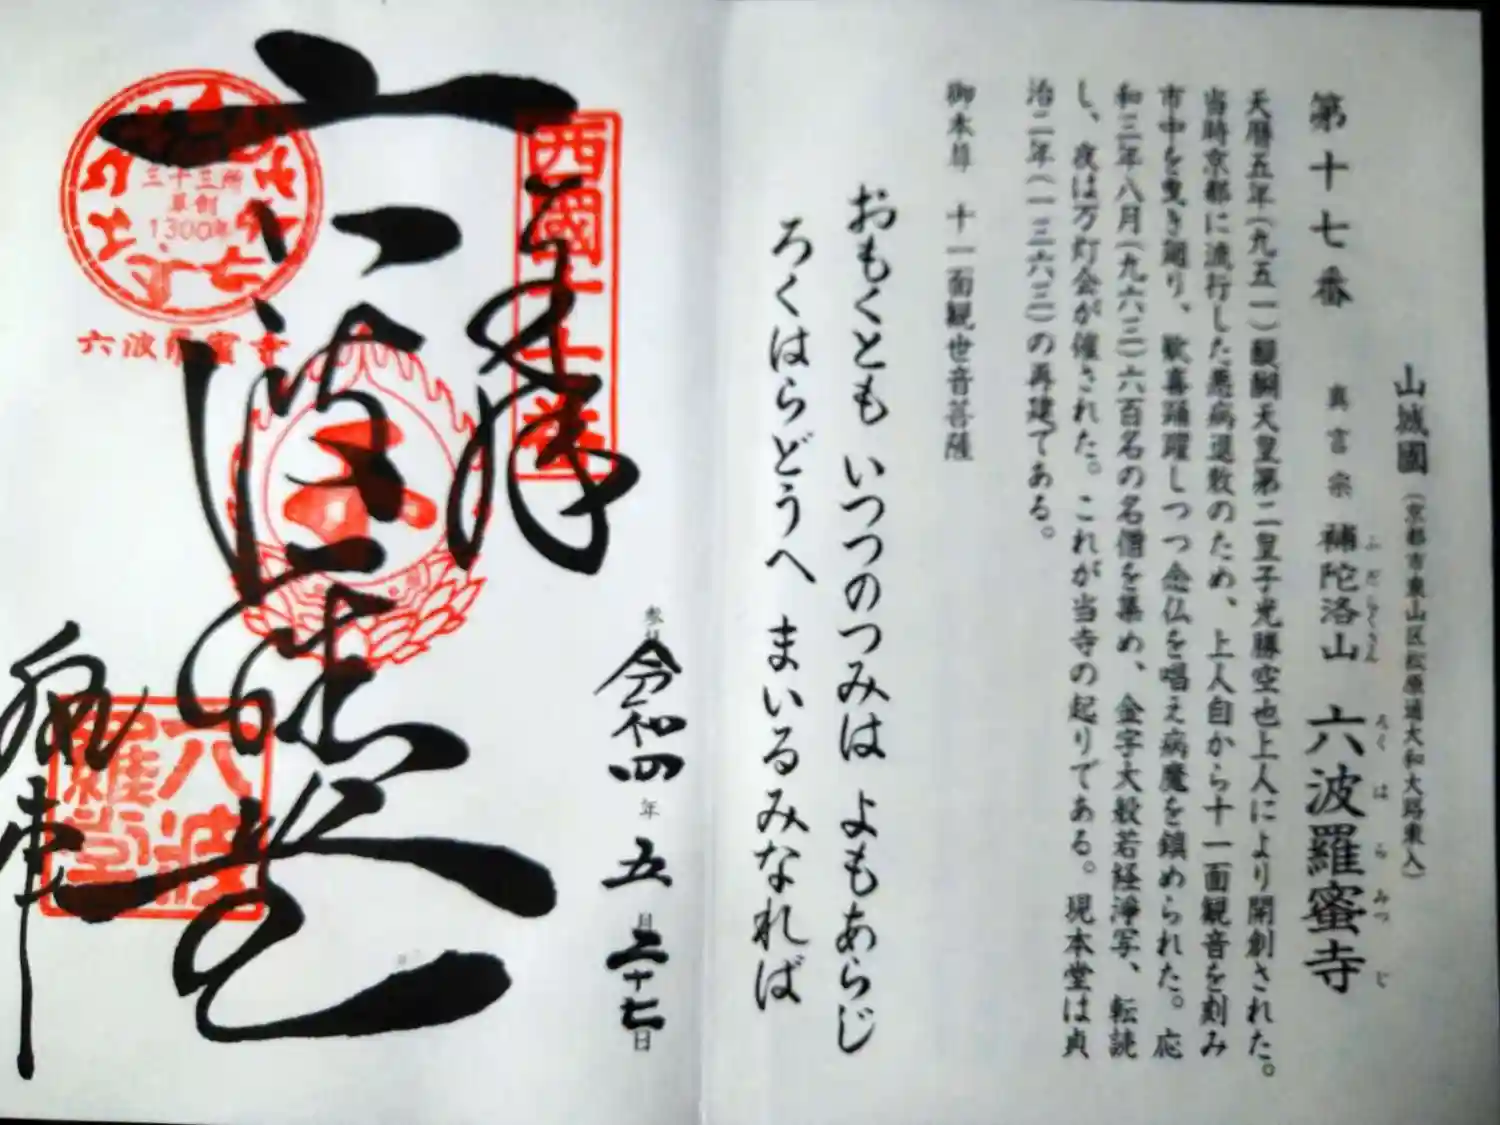 山城國(京都市東山区松原通大和大路東入)
第十七番 真言宗 補陀洛山 六波羅蜜寺
ふだらくさん ろくはらみつじ
天暦五年(九五一)醍醐天皇第二皇子光勝空也上人により開創された。
当時京都に流行した悪病退散のため、上人自から十一面観音を刻み
市中を曳き廻り、歓喜踊躍しつつ念仏を唱え病魔を鎮められた。応
和三年八月(九六三)六百名の名僧を集め、金字大般若経浄写、転読
し、夜は万灯会が催された。これが当寺の起りである。現本堂は貞
治二年(一三六三)の再建である。
御本尊 十一面観世音菩薩
おもくとも いつつのつみは よもあらじ
ろくはらどうへ まいるみなれば
令和四年五月二十七日
奉拝
西國十七番
三十三所
草創
1300年
六波羅蜜寺
六波
羅堂